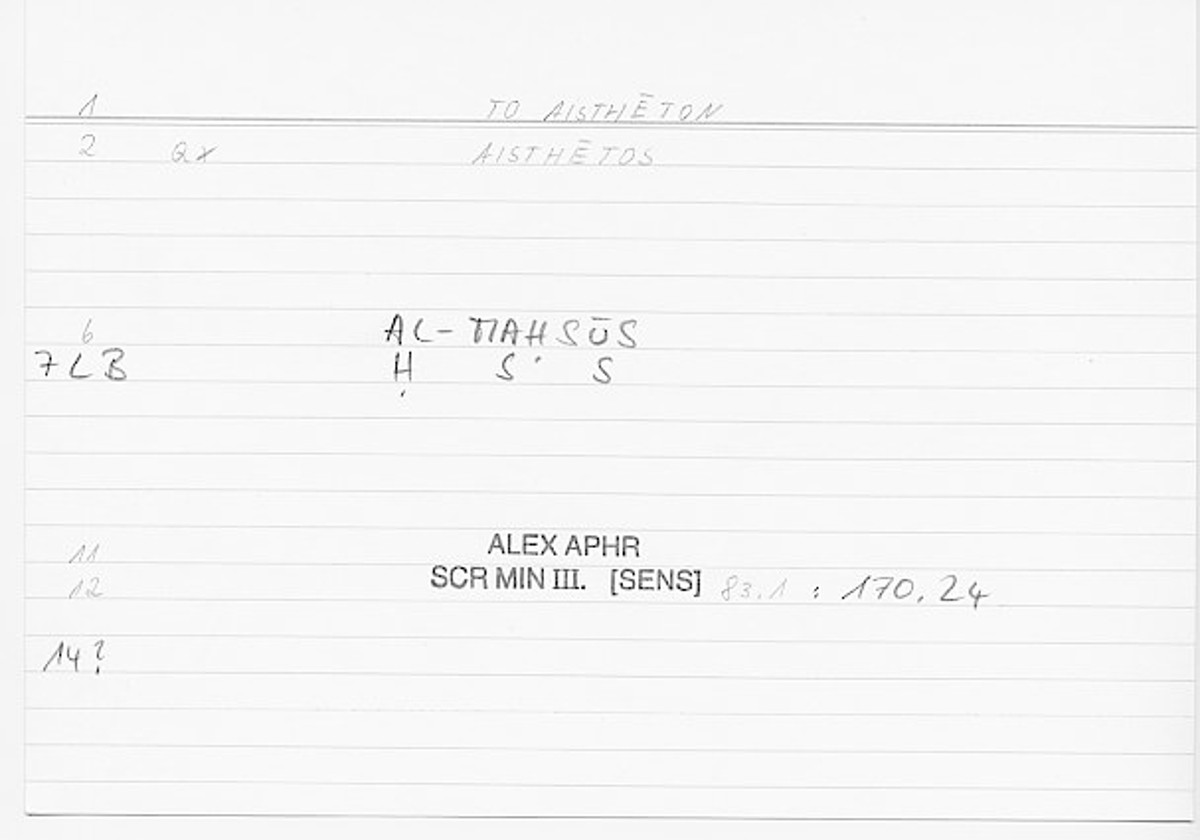 1 TO AISTHĒTON
2 QX AISTHĒTOS
6 AL-MAHSŪS
7LB Ḥ S S
ALEX APHR
11
SCR MIN III. [SENS] 83.1 : 170.24
12
14?